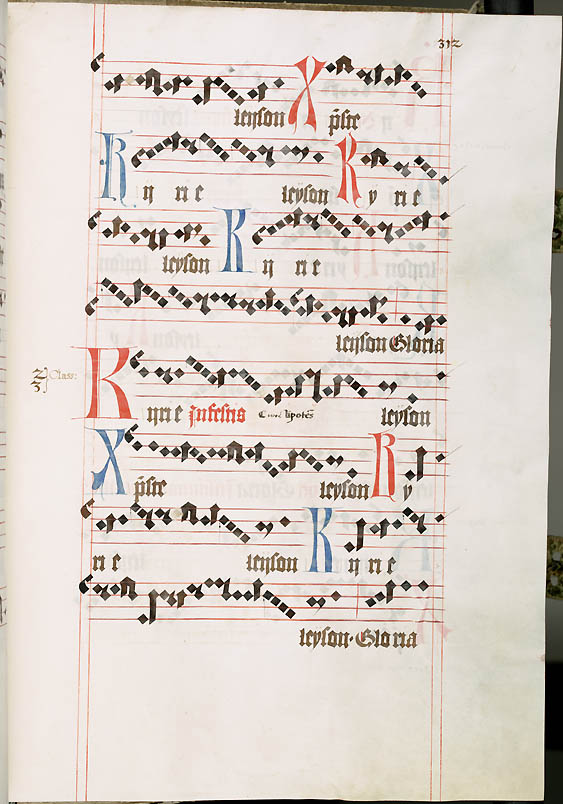 312
leyson Xpste
Ky rie leyson Ky rie
leyson Ky rie
leyson Gloria
2 3 Class:
Kyrie In festis leyson
Xpste leyson Ky
rie leyson Ky rie
leyson. Gloria